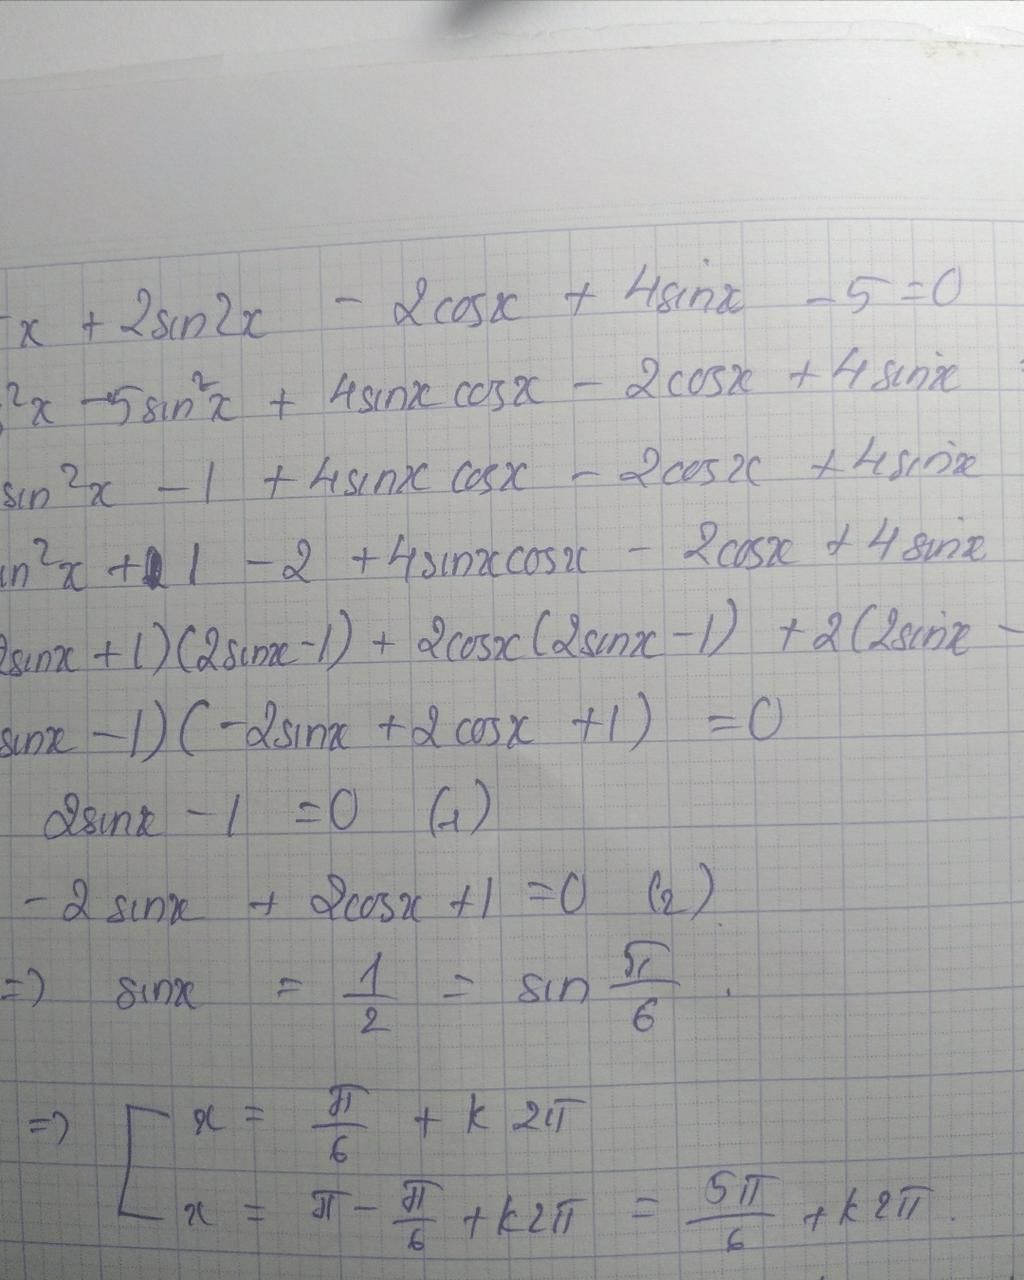 x + 2sin2x - 2cosx + 4sinx - 5 = 0
²x - 5sin²x + 4sinx cosx - 2cosx + 4sinx
sin²x - 1 + 4sinx cosx - 2cosx + 4sinx
in²x + 1 - 2 + 4sinxcosx - 2cosx + 4sinx
2sinx + 1)(2sinx - 1) + 2cosx(2sinx - 1) + 2(2sinx -
sinx - 1)(-2sinx + 2cosx + 1) = 0
2sinx - 1 = 0 (1)
- 2 sinx + 2cosx + 1 = 0 (2)
=> sinx = 1/2 = sin π/6 .
=> [ x = π/6 + k 2π
x = π - π/6 + k2π = 5π/6 + k2π.